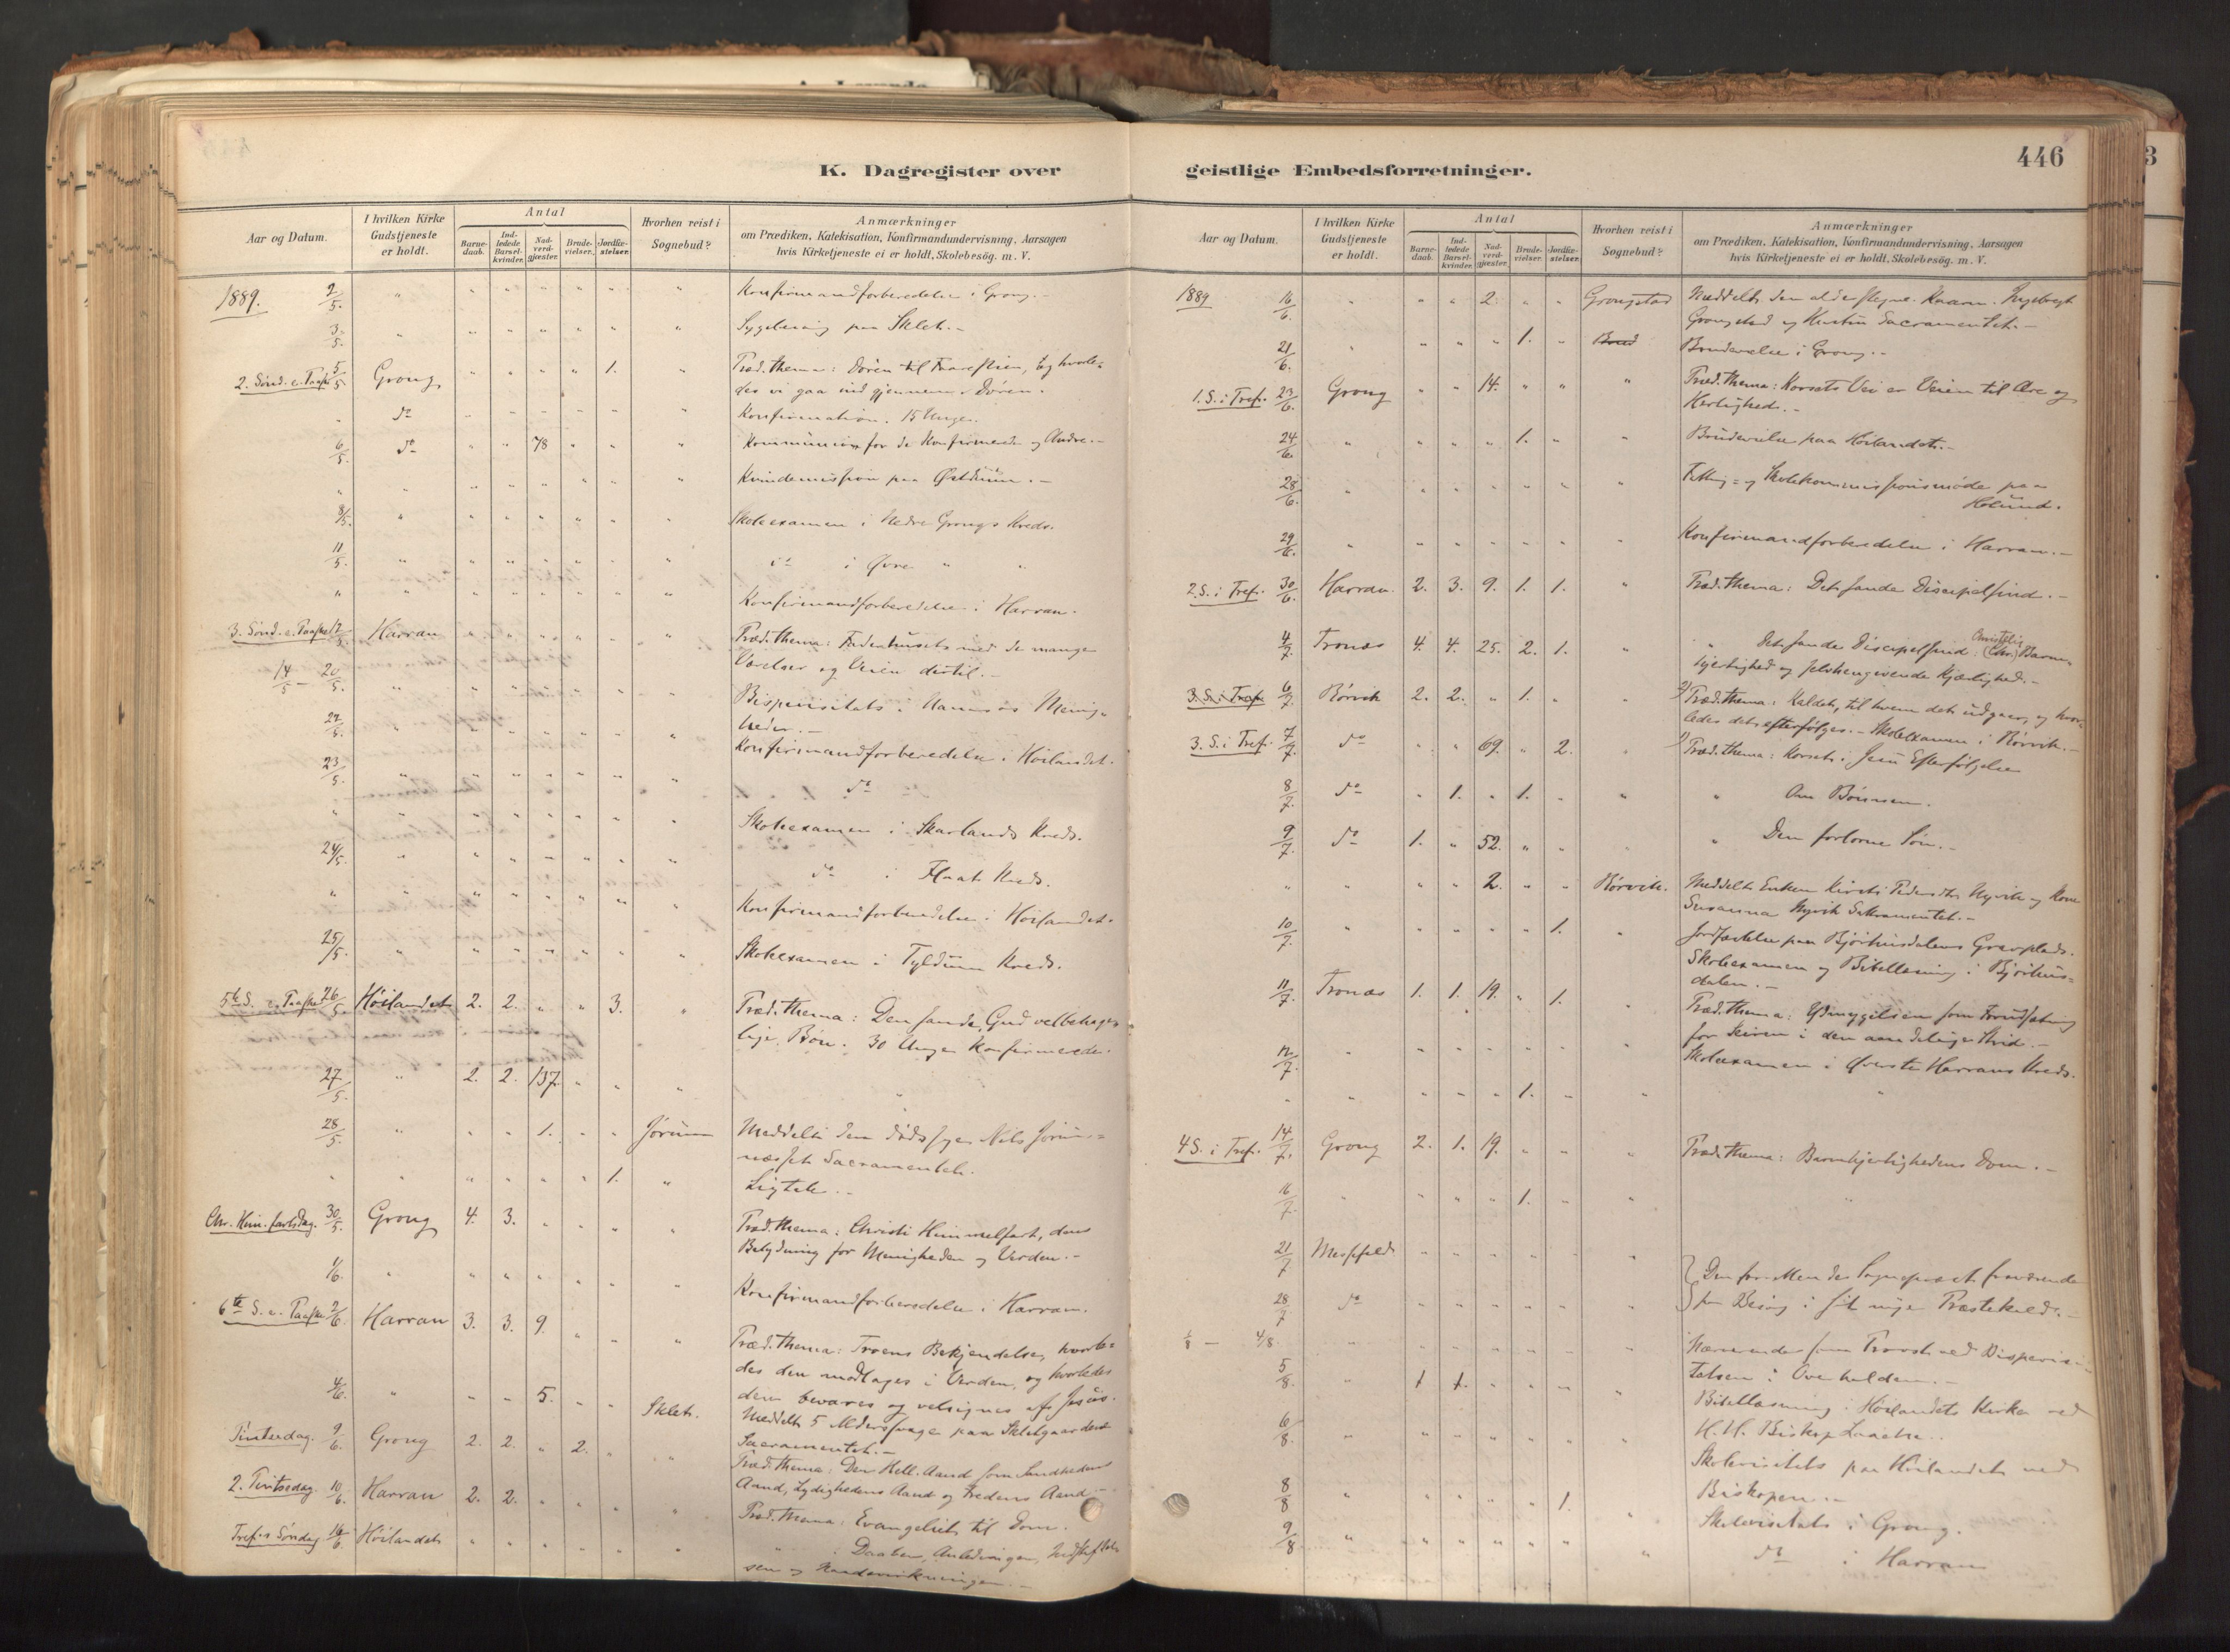 446
K. Dagregister over geistlige Embedsforretninger.
Aar og Datum.
I hvilken Kirke Gudstjeneste er holdt.
Antal
Barnedaab.
Indledede Barselkvinder.
Nadverdgjæster.
Brudevielser.
Jordfæstelser.
Hvorhen reist i Sognebud?
Anmærkninger
om Prædiken, Katekisation, Konfirmandundervisning, Aarsagen
hvis Kirketjeneste ei er holdt, Skolebesög. m. V.
1889. 2/5. " " " " " " " Konfirmandforberedelse i Grong.-
3/5. " " " " " " " paa Sklet.-
2. Sønd. e. Paaske 5/5 Grong " " " " 1. " Præd. thema: Døren til Faarestien, og hvorle-
des vi gaa ind gjennem Døren.
" do " " " " " " Konfirmation. 15 Unge.
6/5. do " " 78 " " " Kommunion for de Konfirmerede og Andre.-
" " " " " " " " Kvindemission paa Østduun.-
8/5. " " " " " " " Skoleexamen i Nedre Grongs Kreds.
11/5. " " " " " " " do i Øvre " "
" " " " " " " " Konfirmandforberedelse i Harran.
3. Sønd. e. Paaske 12/5 Harran " " " " " " Præd. thema: Faderhuset med de mange
Værelser og Veien dertil.-
14/5 - 20/5. " " " " " " " Bispevisitats i Menig-
heder.-
22/5. " " " " " " " Konfirmandforberedelse i Höilandet.
23/5. " " " " " " " do
" " " " " " " " Skoleexamen i Skarlands Kreds.
24/5. " " " " " " " do i Flaat Kreds.
" " " " " " " " Konfirmandforberedelse i Höilandet.
25/5. " " " " " " " Skoleexamen i Tyldum Kreds.
5te S. e. Paaske 26/5. Höilandet 2. 2. " " 3. " Præd. thema: Den sande, Gud velbehage-
lige Bön. 30 Unge Konfirmerede.
27/5. " 2. 2. 137. " " " "
28/5. " " " 1. " " Jörum Meddelt den dødssyge Nils Jörum-
næsset Sacramentet.
" " " " " " 1. " Ligtale.-
Chr. Him. fartsdag. 30/5. Grong 4. 3. " " " " Præd. thema: Christi Himmelfart, dens
Betydning for Menigheden og Verden.-
1/6. " " " " " " " Konfirmandforberedelse i Harran.
6te S. e. Paaske 2/6. Harran 3. 3. 9. " " " Præd. thema: Troens Bekjendelse, hvorle-
des den modtages i Verden, og hvorledes
den bevares og velsignes af Jesus.
4/6. " " " 5. " " Sklet. Meddelt 5 Alderssvage paa Skletgaarden
Sacramentet.-
Pintsedag. 9/6. Grong 2. 2. " 2. " Præd. thema: Den Hell. Aand som Sandhedens
Aand, Lydighedens Aand og Fredens Aand.-
2. Pintsedag. 10/6. Harran 2. 2. " " " " Præd. thema: Evangeliet til Dom.
Tref.s Søndag 16/6 Höilandet " " " " " " " : Daaben, Anledningen, Indstiftel-
sen og Naadevirkningen.-
Aar og Datum.
I hvilken Kirke Gudstjeneste er holdt.
Antal
Barnedaab.
Indledede Barselkvinder.
Nadverdgjæster.
Brudevielser.
Jordfæstelser.
Hvorhen reist i Sognebud?
Anmærkninger
om Prædiken, Katekisation, Konfirmandundervisning, Aarsagen
hvis Kirketjeneste ei er holdt, Skolebesög. m. V.
1889 16/6. " " " 2. " " Grongstad Meddelt den Ingebregt
Grongstad og Hustru Sacramentet.-
21/6. " " " " 1. " Brudevielse i Grong.-
1. S. i Tref. 23/6. Grong " " 14. " " " Præd. thema: Korsets Vei er Veien til Ære og
Herlighed.-
24/6. " " " " 1. " " Brudevielse paa Höilandet.-
28/6. " " " " " " " Fattig- og Skolekommissionsmøde paa
Holund.
29/6. " " " " " " " Konfirmandforberedelse i Harran.-
2. S. i Tref. 30/6. Harran. 2. 3. 9. 1. 1. " Præd. thema: Det sande Discipelsind.-
4/7. Tronæs 4. 4. 25. 2. 1. " " Det sande Discipelsind: Christelig (Chr.) Barm-
hjertighed og selvhengivende Kjærlighed.-
3. S. i Tref. 6/7. Rörvik 2. 2. " 1. " " 2) Præd. thema: Kaldet, til hvem det udgaar, og hvor-
ledes det efterfölges.- Skoleexamen i Rörvik.-
3. S. i Tref. 7/7. do " " 69. " 2. " 1) Præd. thema: Korset i Jesu Efterfölgelse
8/7. do " 1. " 1. " " " Om Bönnen.
9/7. do 1. " 52. " " " " Den fortorne Sön.-
" " " " 2. " " Rörvik. Meddelt Enken Kirsti Pedersdtr. Nyvik og Kone
Susanna Nyvik Sakramentet.-
10/7. " " " " " 1. " Jordfæstelse paa Bjørhusdalens Gravplads.
Skoleexamen og Bibellæsning i Bjørhus-
dalen.-
11/7. Tronæs 1. 1. 19. " 1. " Præd. thema: Ydmygelsen som Forudsætning
for Seiren i den aandelige Strid.-
12/7. " " " " " " " Skoleexamen i Øverste Harrans Kreds.
" " " " " 1. " " "
4 S. i Tref. 14/7. Grong 2. 1. 19. " " " Præd. thema: Barmhjertighedens Dom.-
16/7. " " " " 1. " " "
21/7 Messefald " " " " " " Den Sognepræst fraværende
28/7 do " " " " " " paa Besög i sit nye Præstekald.-
1/8 - 4/8. " " " " " " " Nærværende som Provst ved Bispevisi-
tatsen i Overhalden.-
5/8. " " " " " " Bibellæsning i Höilandets Kirke ved
H.H. Biskop Laache.
6/8. " " " " " " " Skolevisitats paa Höilandet ved
Biskopen.-
8/8 " " " " " 1. " Skolevisitats i Grong.
9/8 " " " " " " " do i Harran